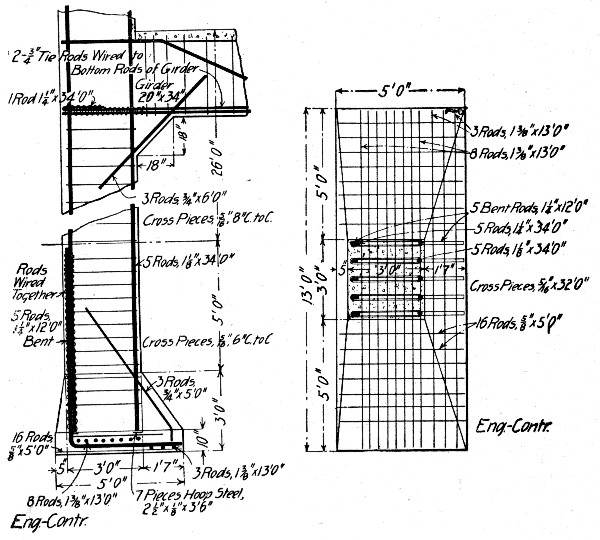 2-¾" Tie Rods Wired to
Bottom Rods of Girder
Girder
20"x34"
1 Rod 1¼"x34'0"
18"
18"
26'0"
3 Rods, ¾"x6'0"
Cross Pieces, 5/16", 8"C. to C.
Rods
Wired
Together
5 Rods, 1⅛"x34'0"
5 Rods,
1½"x12'0"
Bent
5'0"
Cross Pieces, 5/16", 6"C. to C
3 Rods,
¾"x5'0"
3'0"
16 Rods,
⅝"x5'0"
10"
5"
3'0"
1'7"
3 Rods, 1⅜"x13'0"
5'0"
8 Rods, 1⅜"x13'0"
7 Pieces Hoop Steel,
2½"x⅛"x3'6"
Eng-Contr.
5'0"
3 Rods, 1⅜"x13'0"
8 Rods, 1⅜"x13'0"
5'0"
5 Bent Rods, 1¼"x12'0"
5 Rods, 1¼"x34'0"
5 Rods, 1⅛"x34'0"
5"
3'0"
1'7"
13'0"
3'0"
Cross Pieces, 5/16"x32'0"
16 Rods, ⅝"x5'0"
5'0"
Eng-Contr.